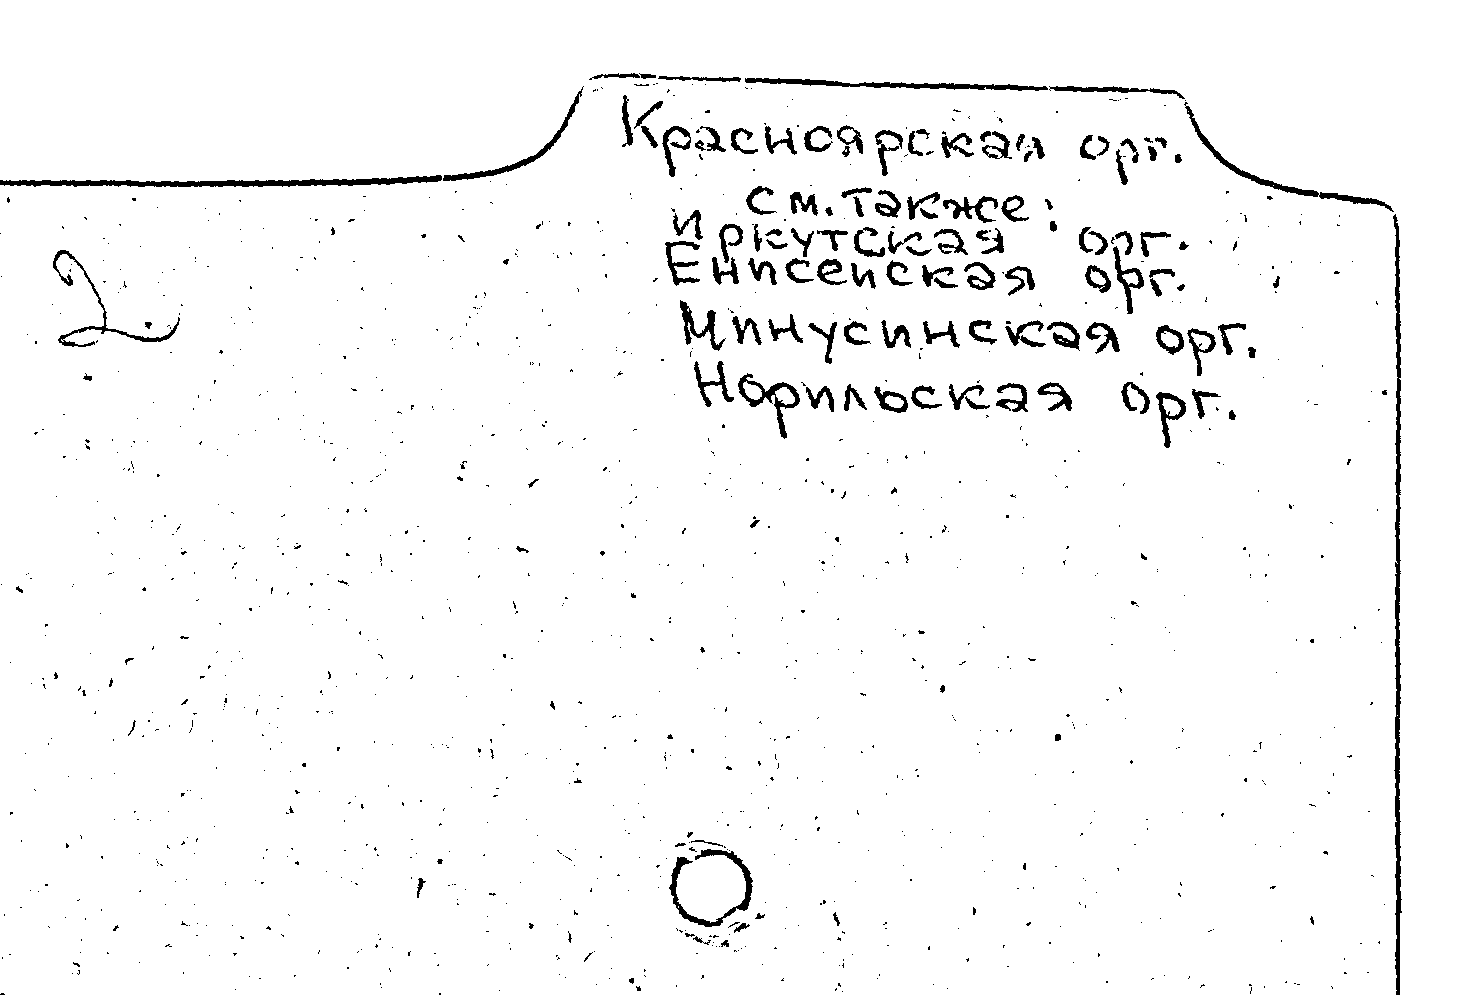 Красноярская орг.
см. также:
Иркутская орг.
2.
Енисейская орг.
Минусинская орг.
Норильская орг.